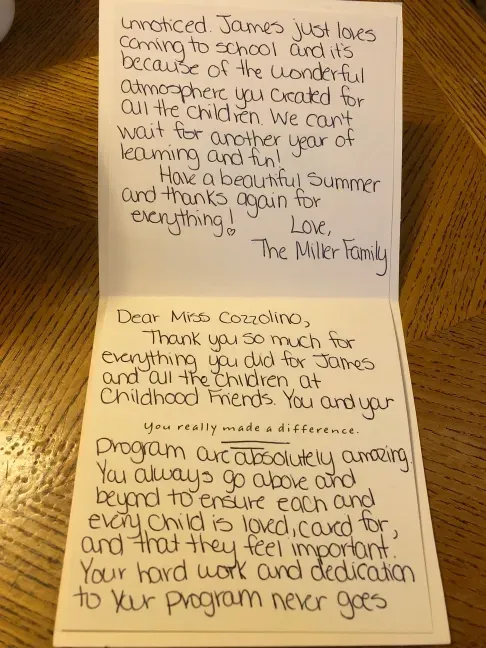 Dear Miss Cozzolino,
Thank you so much for
everything you did for James
and all the children at
Childhood Friends. You and your
you really made a difference.
Program are absolutely amazing.
You always go above and
beyond to ensure each and
every child is loved, cared for,
and that they feel important.
Your hard work and dedication
to your program never goes
unnoticed. James just loves
coming to school and it's
because of the wonderful
atmosphere you created for
all the children. We can't
wait for another year of
learning and fun!
Have a beautiful Summer
and thanks again for
everything!
Love,
The Miller Family